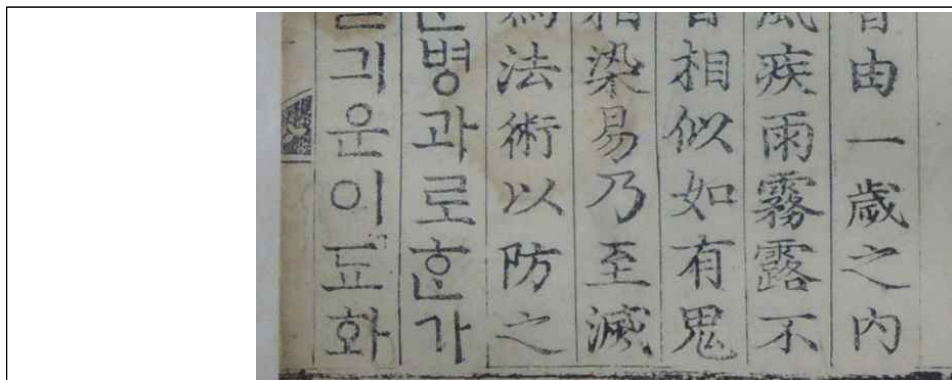 由一歲之內
風疾雨霧露不
相似如有鬼
相染易乃至滅
爲法術以防之
병과로ᄒᆞᆫ가
긔운이됴화